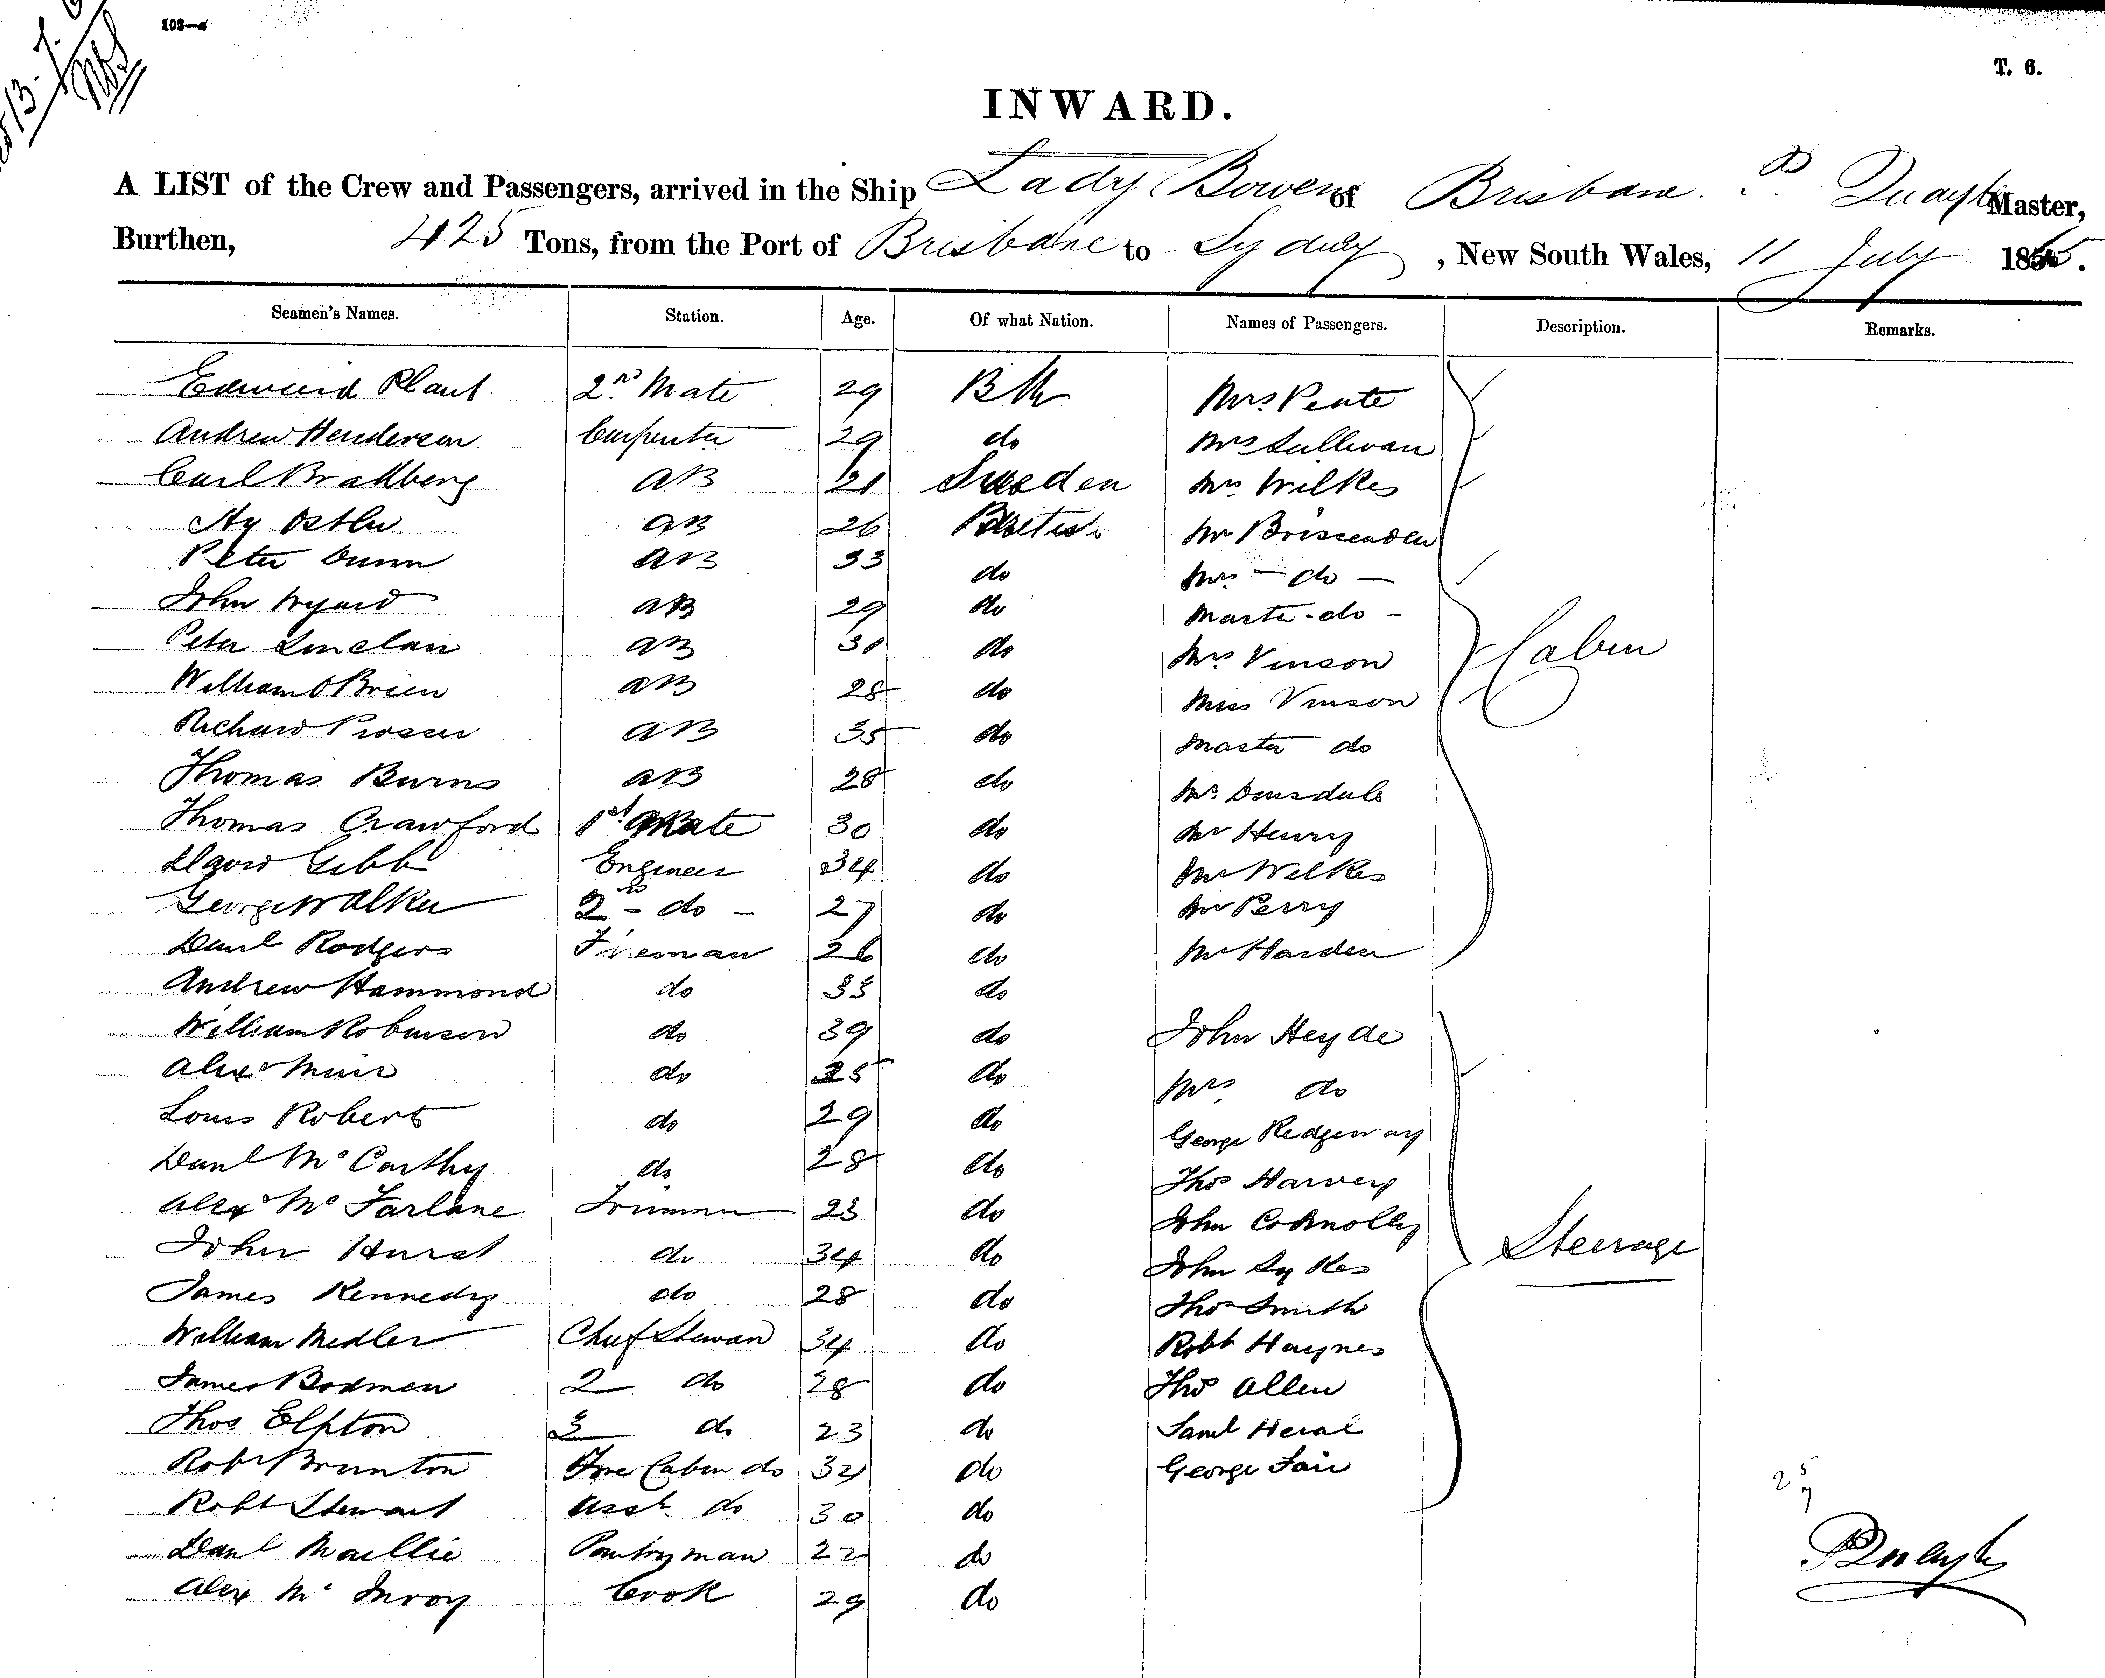 103—a
T. 6.
INWARD.
A LIST of the Crew and Passengers, arrived in the Ship Lady Bowen of Brisbane. P Quayle Master,
Burthen, 425 Tons, from the Port of Brisbane to Sydney, New South Wales, 11 July 1865.
Seamen's Names. Station. Age. Of what Nation. Names of Passengers. Description. Remarks.
Edmund Plant 2nd Mate 29 Mrs Peate
Andrew Henderson Carpenter 29 do Mrs Sullivan
Carl Brakberg AB 21 Sweden Mrs Wilkes
Hy AB 26 British Mr Briscenden
Peter Dunn AB 33 do Mrs - do -
John Wyard AB 29 do Master - do -
Peter Sinclair AB 30 do Mrs Vinson
William O Brien AB 28 do Miss Vinson Cabin
Richard Prosser AB 35 do Master do
Thomas Burns AB 28 do Mr Donsdale
Thomas Crawford 1st Mate 30 do Mr Henry
David Gibb Engineer 34 do Mr Wilkes
George Walker 2nd - do - 27 do Mr Perry
Danl Rodgers Fireman 26 do Mr Harden
Andrew Hammond do 33 do
William Robinson do 39 do John Heyde
Alexr Muir do 25 do Mrs do
Louis Robert do 29 do George Redgeway
Danl McCarthy do 28 do Thos Harvey
Alexr McFarlane Trimmer 23 do John Connolly
John Hurst do 34 do John Sykes Steerage
James Kennedy do 28 do Thos Smith
William Medler Chief Steward 34 do Robt Haynes
James Bodmen 2 do 28 do Thos Allen
Thos Elpton 3 do 23 do Saml Heral
Robt Brunton Fore Cabin do 32 do George Fair
Robt Stewart Asst do 30 do
Danl Maillie Pantryman 22 do
Alex McInroy Cook 29 do
25
7
P Quayle